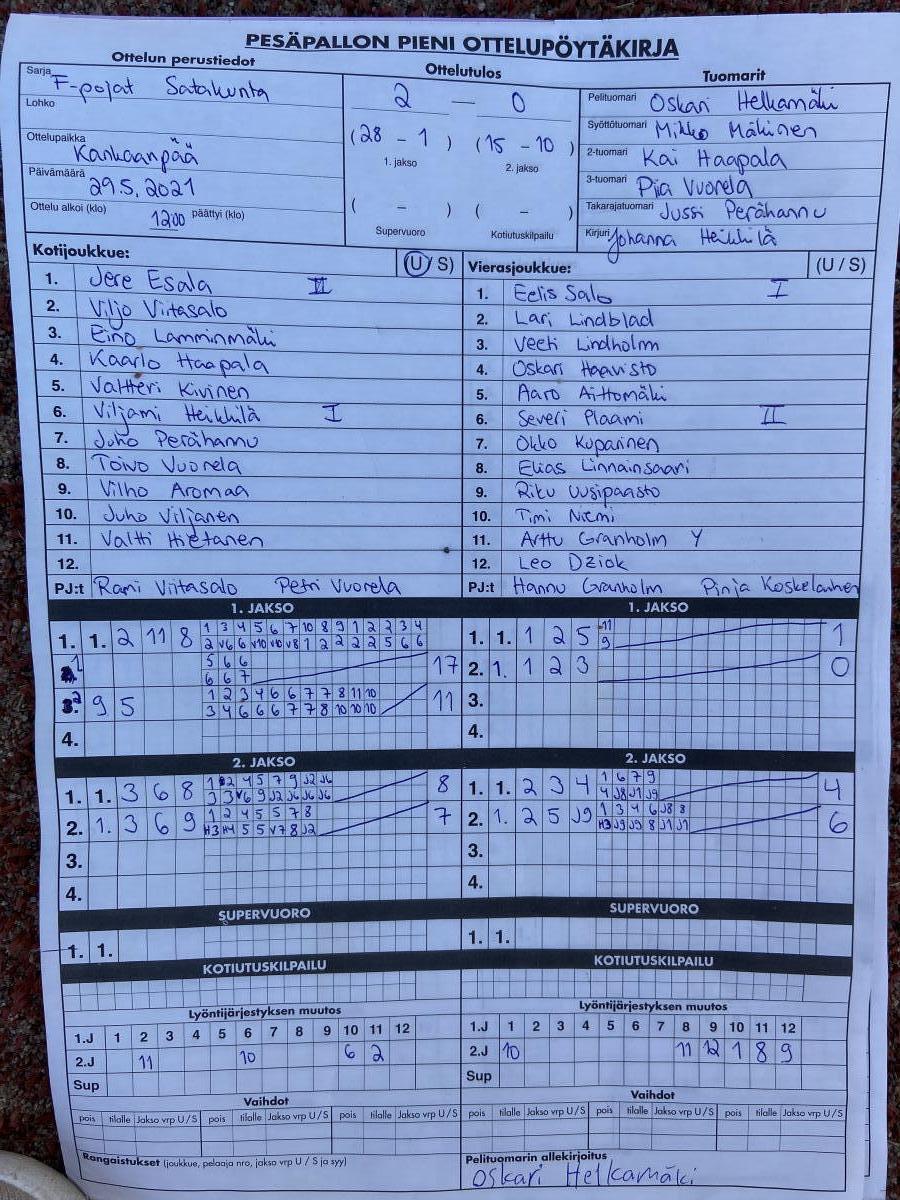 PESÄPALLON PIENI OTTELUPÖYTÄKIRJA
Ottelun perustiedot Ottelutulos Tuomarit
Sarja F-pojat Satakunta
Lohko
Ottelupaikka Kankaanpää
Päivämäärä 29.5.2021
Ottelu alkoi (klo) 1200 päättyi (klo)
2 — 0
(28 - 1) (15 - 10)
1. jakso 2. jakso
( - ) ( - )
Supervuoro Kotiutuskilpailu
Pelituomari Oskari Helkamäki
Syöttötuomari Mikko Mäkinen
2-tuomari Kai Haapala
3-tuomari Pia Vuorela
Takarajatuomari Jussi Perähannu
Kirjuri Johanna Heikkilä
Kotijoukkue: (U / S)
1. Jere Esala II
2. Viljo Viitasalo
3. Eino Lamminmäki
4. Kaarlo Haapala
5. Valtteri Kivinen
6. Viljami Heikkilä I
7. Juho Perähannu
8. Toivo Vuorela
9. Vilho Aromaa
10. Juho Viljanen
11. Valtti Hietanen
12.
PJ:t Rami Viitasalo Petri Vuorela
Vierasjoukkue: (U / S)
1. Eelis Salo I
2. Lari Lindblad
3. Veeti Lindholm
4. Oskari Haavisto
5. Aaro Aittomäki
6. Severi Plaami II
7. Okko Kuparinen
8. Elias Linnainsaari
9. Riku Uusipaasto
10. Timi Niemi
11. Arttu Granholm Y
12. Leo Dziok
PJ:t Hannu Granholm Pinja Koskelainen
1. JAKSO
1. 1. 2 11 8 1 3 4 5 6 7 10 8 9 1 2 2 3 4
2 V6 6 V10 V10 V8 1 2 2 2 2 5 6 6
1 5 6 6
6 6 7 17
2 9 5 1 2 3 4 6 6 7 7 8 11 10
3 4 6 6 6 7 7 8 10 10 10 11
4.
1. JAKSO
1. 1. 1 2 5 11
9 1
2. 1. 1 2 3 0
3.
4.
2. JAKSO
1. 1. 3 6 8 1 2 4 5 7 9 J2 J6
3 3 V6 9 J2 J6 J6 J6 8
2. 1. 3 6 9 1 2 4 5 5 7 8
H3 H4 5 5 V7 8 J2 7
3.
4.
2. JAKSO
1. 1. 2 3 4 1 6 7 9
4 J8 J1 J9 4
2. 1. 2 5 J9 1 3 4 6 J8 8
H3 J9 J9 8 J1 J1 6
3.
4.
SUPERVUORO
1. 1.
SUPERVUORO
1. 1.
KOTIUTUSKILPAILU
KOTIUTUSKILPAILU
Lyöntijärjestyksen muutos
1.J 1 2 3 4 5 6 7 8 9 10 11 12
2.J 11 10 6 2
Sup
Lyöntijärjestyksen muutos
1.J 1 2 3 4 5 6 7 8 9 10 11 12
2.J 10 11 12 1 8 9
Sup
Vaihdot
pois tilalle Jakso vrp U / S pois tilalle Jakso vrp U / S pois tilalle Jakso vrp U / S
Vaihdot
pois tilalle Jakso vrp U / S pois tilalle Jakso vrp U / S pois tilalle Jakso vrp U / S
Rangaistukset (joukkue, pelaaja nro, jakso vrp U / S ja syy)
Pelituomarin allekirjoitus
Oskari Helkamäki